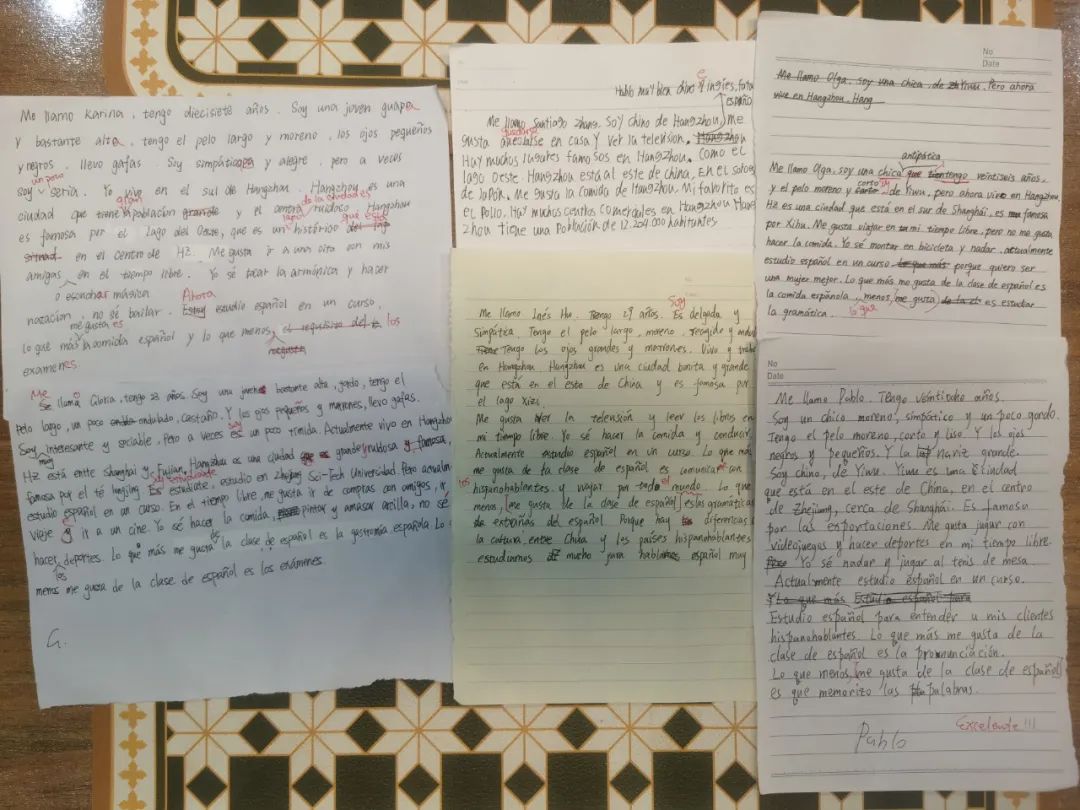 Me llamo Karina, tengo diecisiete años. Soy una joven guapa
y bastante alta, tengo el pelo largo y moreno, los ojos pequeños
y negros, llevo gafas. Soy simpática y alegre, pero a veces
un poco
soy seria. Yo vivo en el sur de Hangzhou. Hangzhou es una
gran
de la ciudad es
ciudad que tiene población grande y el centro ruidoso. Hangzhou
lugar que está
es famosa por el Lago del Oeste, que es un histórico del
en el centro de HZ. Me gusta ir a una cita con mis
amigas en el tiempo libre. Yo sé tocar la armónica y hacer
o escuchar música
Ahora
natación, no sé bailar. Estoy estudio español en un curso,
me gusta es
lo que más la comidia español y lo que menos, el requisito de los
examenes.
Me
Se llamo Gloria, tengo 23 años. Soy una joven bastante alta, gordo, tengo el
pelo largo, un poco ondulado, castaño. Y los ojos pequeños y marrones, llevo gafas.
soy
Soy interesante y sociable, Pero a veces es un poco tímida. Actualmente vivo en Hangzhou
muy
HZ está entre Shanghai y Fujian, Hangzhou es una ciudad grande, ruidosa y famosa,
soy estudiante
famosa por el té longjing Es estudiate, estudio en Zhejiang Sci-Tech Universidad Pero actualm
estudio español en un curso. En el tiempo libre, me gusta ir de compras con amigos, ir
viaje y ir a un cine. Yo sé hacer la comida, pintar y amasar arcilla, no sé
es
hacer deportes. Lo que más me gusta la clase de español es la gastromía española. Lo
los
menos me gusta de la clase de español es los exámenes.
G.
Hablo muy bien chino e inglés, fatal
español
Me llamo Santiago Zhang. Soy chino de Hangzhou, me
quedarse
gusta en casa y ver la televisión. Hangzhou
Hay muchos lugares famosos en Hangzhou. como el
lago Oeste. Hangzhou está al este de china, en el
de Japón. Me gusta la comida de Hangzhou. Mi faborito es
el Pollo. Hay muchos centlos comerciales en Hangzhou Hang
zhou tiene una Población de 12.204.000 habitantes
Soy
Me llamo Inés Hu. Tengo 27 años. Es delgada y
Simpática. Tengo el pelo largo, moreno, recogido y ondul
Tiene Tengo los ojos grandes y marrones. Vivo y trab
en Hangzhou Hangzhou es una ciudad bonita y grande
que está en el este de China y es famosa por
el lago Xizi.
Me gusta ver la telensión y leer los libros en
mi tiempo libre. Yo sé hacer la comida y conducir.
Actualmente estudio español en un curso. Lo que más
me gusta de la clase de español es comunicar con
los
el
hispanohablantes y viajar por todo mundo. Lo que
menos, me gusta de la clase de español es las gramáticas
de extrañas del español Porque hay diferencias
la cultura entre China y los países hispanohablantes
estudiamos mucho para hablar español muy
No
Date
Me llamo Olga. Soy una chica de Yiwu. Pero ahora
vive en Hangzhou. Hang
antipática
Me llamo Olga, soy una chica que tengo veintiseis años,
corto
y el pelo moreno y corto de Yiwu, pero ahora vivo en Hangzhou
Hz es una ciudad que está en el sur de Shanghai. es famosa
por Xihu. Me gusta viajar en mi tiempo libre, pero no me gusta
hacer la comida. Yo sé montar en bicicleta y nadar. actualmente
estudio español en un curso lo que más porque quiero ser
una mujer mejor. Lo que más me gusta de la clase de español es
la comida española, menos, me gusta de la es estudiar
lo que
la gramática.
No
Date
Me llamo Pablo. Tengo veintiocho años.
Soy un chico moreno, simpático y un poco gordo.
Tengo el pelo moreno, corto y liso. Y los ojos
negros y pequeños. Y la nariz grande.
Soy chino, de Yiwu. Yiwu es una ciudad
que está en el este de China, en el centro
de Zhejiang, cerca de Shanghai. Es famosa
por las exportaciones. Me gusta jugar con
videojuegos y hacer deportes en mi tiempo libre.
Yo sé nadar y jugar al tenis de mesa.
Actualmente estudio español en un curso.
Y Lo que más Estudio español para
Estudio español para entender a mis clientes
hispanohablantes. Lo que más me gusta de la
clase de español es la pronunciación.
Lo que menos, me gusta de la clase de español
es que memorizo las palabras.
Excelente!!!
Pablo